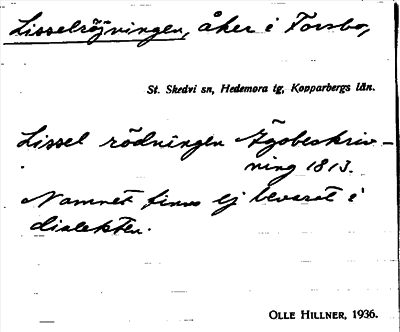 Lisselröjningen, åker i Forsbo,
St. Skedvi sn, Hedemora tg, Kopparbergs län.
Lissel rödningen Ägobeskriv-
ning 1813.
Namnet finns ej bevarat i
dialekten.
OLLE HILLNER, 1936.